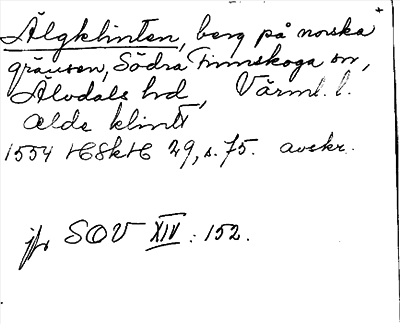 Älgklinten, berg på norska
gränsen, Södra Finnskoga sn,
Älvdals hd, Värml. l.
Ælda klint
1554 HSkH 29, s. 75. avskr.
jfr SOV XIV : 152.